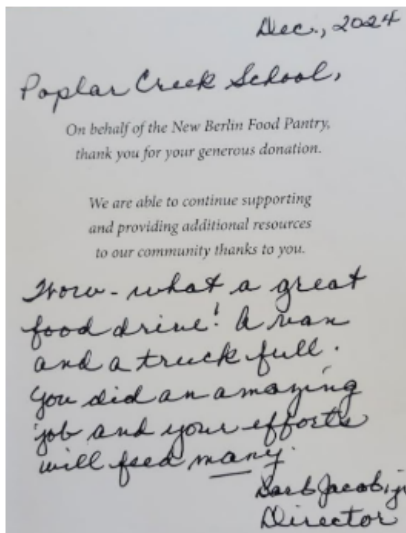 Dec., 2024
Poplar Creek School,
On behalf of the New Berlin Food Pantry,
thank you for your generous donation.
We are able to continue supporting
and providing additional resources
to our community thanks to you.
Wow - what a great
food drive! A van
and a truck full.
You did an amazing
job and your efforts
will feed many.
Barb
Director